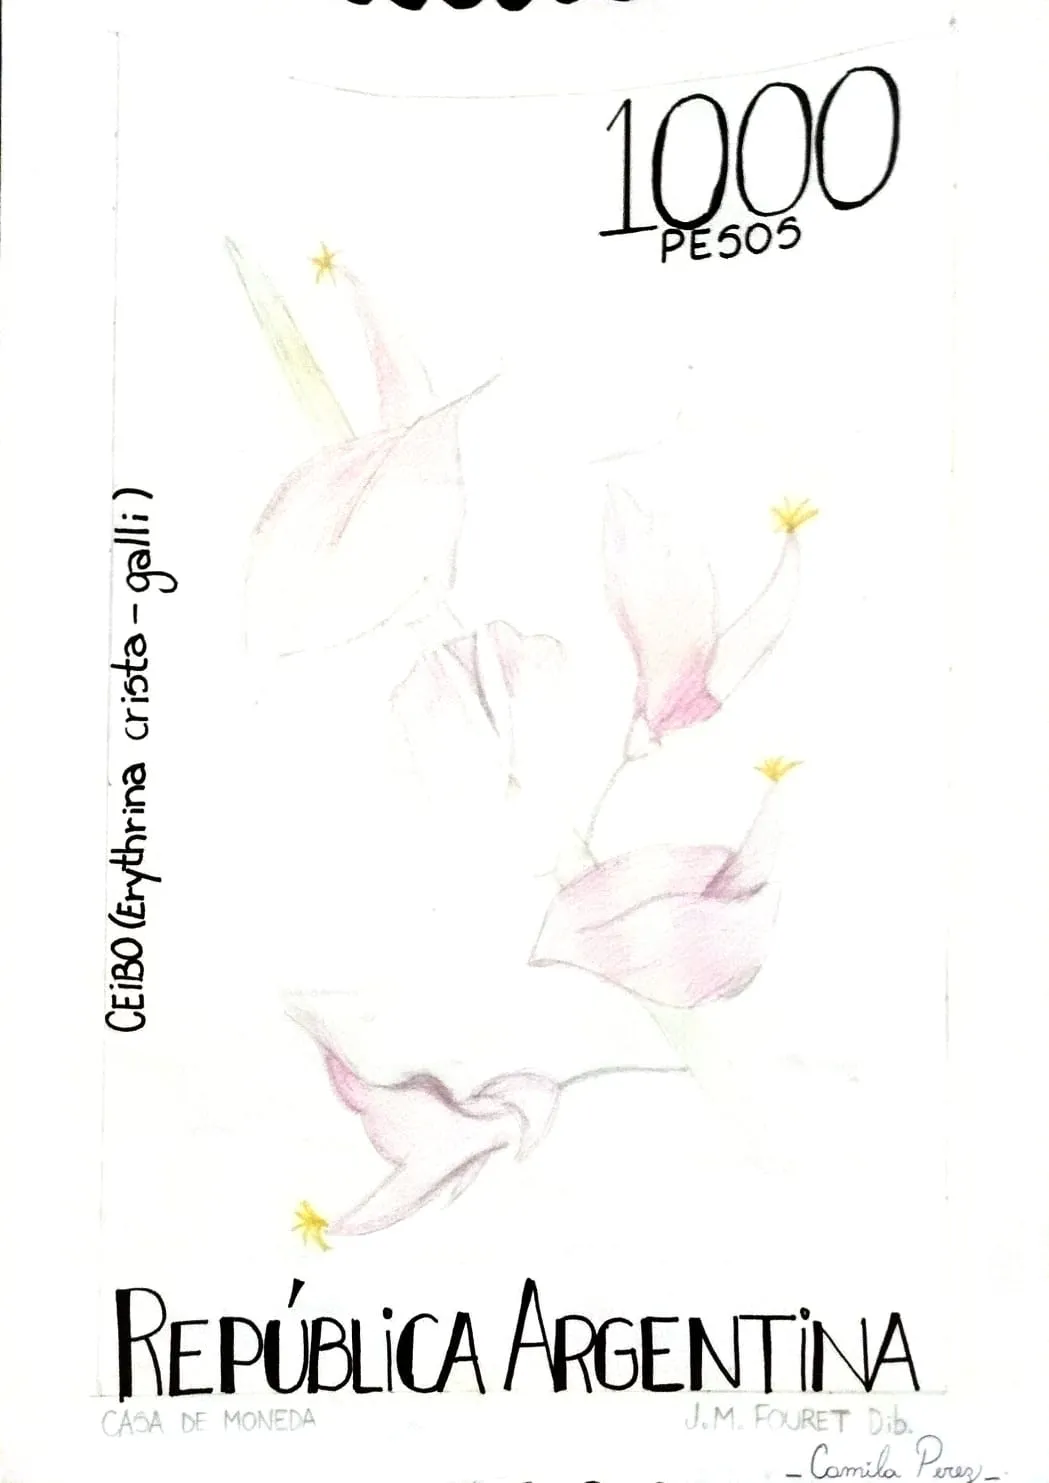 1000
PESOS
CEiBO (Erythrina crista-galli)
REPÚBLiCA ARGENTiNA
CASA DE MONEDA
J.M. FOURET Dib.
- Camila Perez -